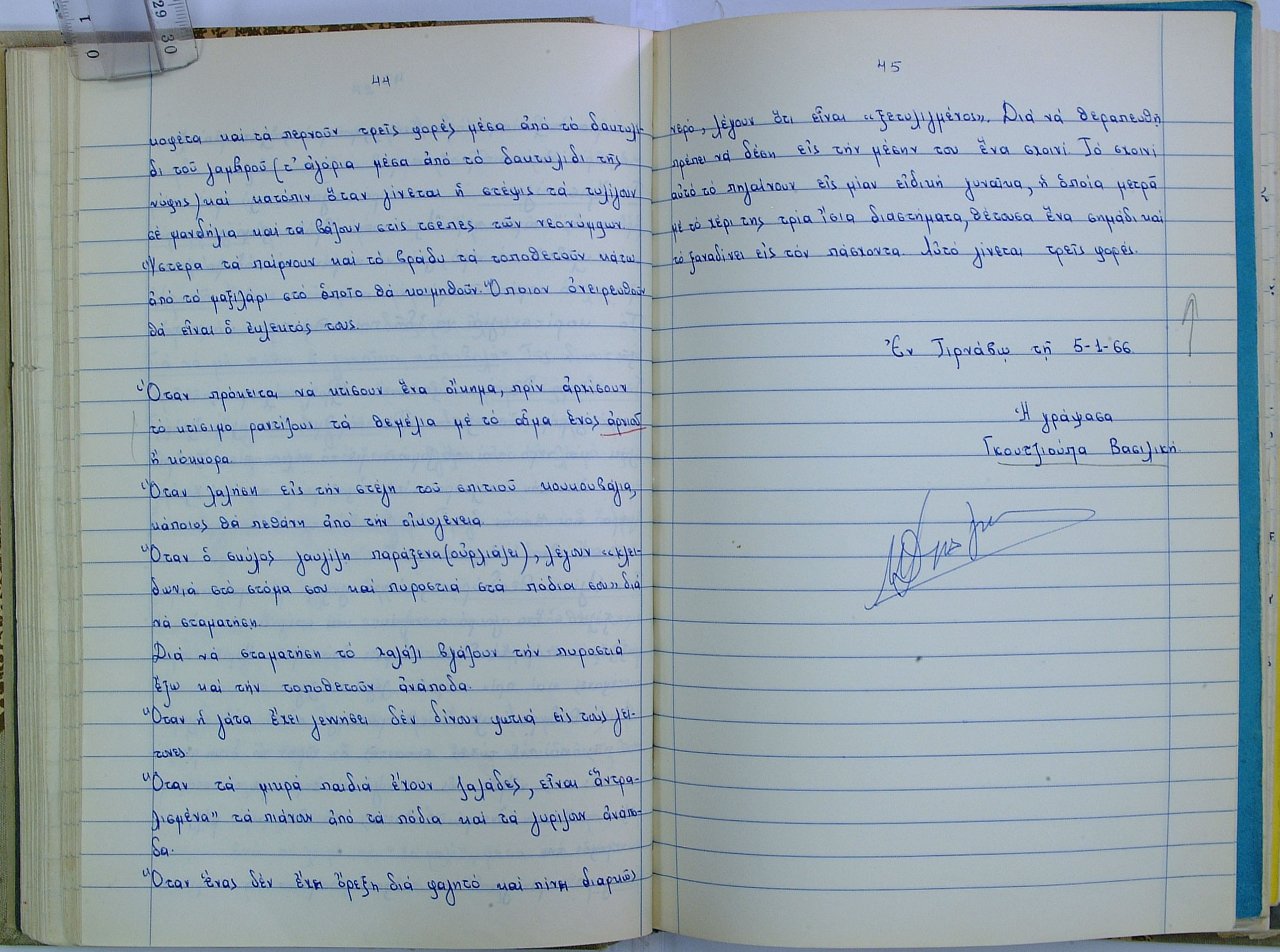 44
κουφέτα καὶ τὰ περνοῦν τρεῖς φορές μέσα ἀπό τό δακτυλί-
δι τοῦ γαμβροῦ (τ' ἀγόρια μέσα ἀπό τό δακτυλίδι τῆς
νύφης) καὶ κατόπιν ὅταν γίνεται ἡ στέψις τά τυλίγουν
σέ μανδήλια καὶ τά βάζουν στίς τσέπες τῶν νεονύμφων.
Ὕστερα τά παίρνουν καὶ τό βράδυ τά τοποθετοῦν κάτω
ἀπό τό μαξιλάρι στό ὁποῖο θά κοιμηθοῦν. Ὅποιον ὀνειρευθοῦν
θά εἶναι ὁ ἐκλεκτός τους.
Ὅταν πρόκειται νά κτίσουν ἕνα οἴκημα, πρίν ἀρχίσουν
τό κτίσιμο ραντίζουν τά θεμέλια μέ τό αἷμα ἑνός ἀρνιοῦ
ἤ κόκκορα.
Ὅταν λαλήση εἰς τήν στέγη τοῦ σπιτιοῦ κουκουβάγια,
κάποιος θά πεθάνη ἀπό τήν οἰκογένεια.
Ὅταν ὁ σκύλος γαυγίζη παράξενα (οὐρλιάζει), λέγουν «κλει-
δωνιά στό στόμα σου καὶ πυροστιά στά πόδια σου» διά
νά σταματήση.
Διά νά σταματήση τό χαλάζι βγάζουν τήν πυροστιά
ἔξω καὶ τήν τοποθετοῦν ἀνάποδα.
Ὅταν ἡ γάτα ἔχει γεννήσει δέν δίνουν φωτιά εἰς τούς γεί-
τονες.
Ὅταν τά μικρά παιδιά ἔχουν ζαλάδες, εἶναι "ἀντρα-
λισμένα" τά πιάνουν ἀπό τά πόδια καὶ τά γυρίζουν ἀνάπο-
δα.
Ὅταν ἕνας δέν ἔχει ὄρεξη διά φαγητό καὶ πίνει διαρκῶς
45
νερό, λέγουν ὅτι εἶναι «ξετυλιγμένος». Διά νά θεραπευθῆ
πρέπει νά δέση εἰς τήν μέσην του ἕνα σχοινί. Τό σχοινί
αὐτό τό πηγαίνουν εἰς μίαν εἰδική γυναῖκα, ἡ ὁποία μετρᾶ
μέ τό χέρι της τρία ἴσια διαστήματα, θέτουσα ἕνα σημάδι καὶ
τό ξαναδίνει εἰς τόν πάσχοντα. Αὐτό γίνεται τρεῖς φορές.
Ἐν Τιρνάβῳ τῇ 5-1-66
Ἡ γράψασα
Γκουτζιούπα Βασιλική.